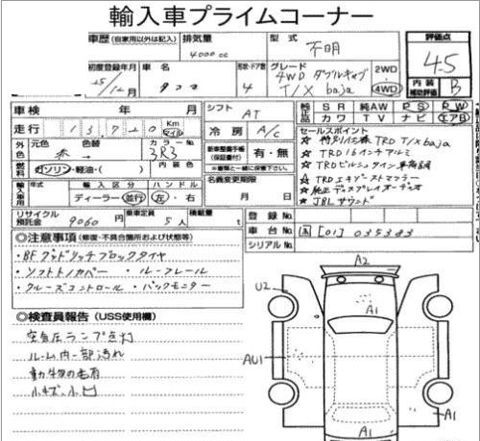 輸入車プライムコーナー
車歴 (自家用以外は記入) 排気量 4000cc 型式 不明 評価点 4.5
初度登録年月 25/12月 車名 タコマ 形状・ドア数 4 グレード 4WD ダブルキャブ T/X baja 2WD 4WD 内装補助評価 B
車検 年 月 シフト AT SR 純AW PS PW
走行 13,720 Km マイル 冷房 A/C カワ TV ナビ エアB
外色 元色 赤 色替 カラーNo. 3R3 内装色
燃料 ガソリン・軽油・( )
新車整備手帳(保証書付) 有・無
セールスポイント
☆ 特別仕様 TRD T/X baja
☆ TRD 16インチアルミ
☆ TRD ビルシュタイン車高調
☆ TRD エキゾーストマフラー
☆ 純正ディスプレイオーディオ
☆ JBL サウンド
輸入車用 年式 輸入区分 ディーラー・並行 ハンドル 左・右
名義変更期限 月 日
リサイクル預託金 9060円 乗車定員 5人 積載量 t
登録No.
車台No. [01]035383
シリアルNo.
◎注意事項 (修復・不具合箇所および状態等)
・BFグッドリッチブロックタイヤ
・ソフトトノカバー ・ルーフレール
・クルーズコントロール ・バックモニター
◎検査員報告 (USS使用欄)
空気圧ランプ点灯
ルーム内一部汚れ
動物の毛有
小キズ、小凹
A2
U2
A1
AU1
A1
A1
A1